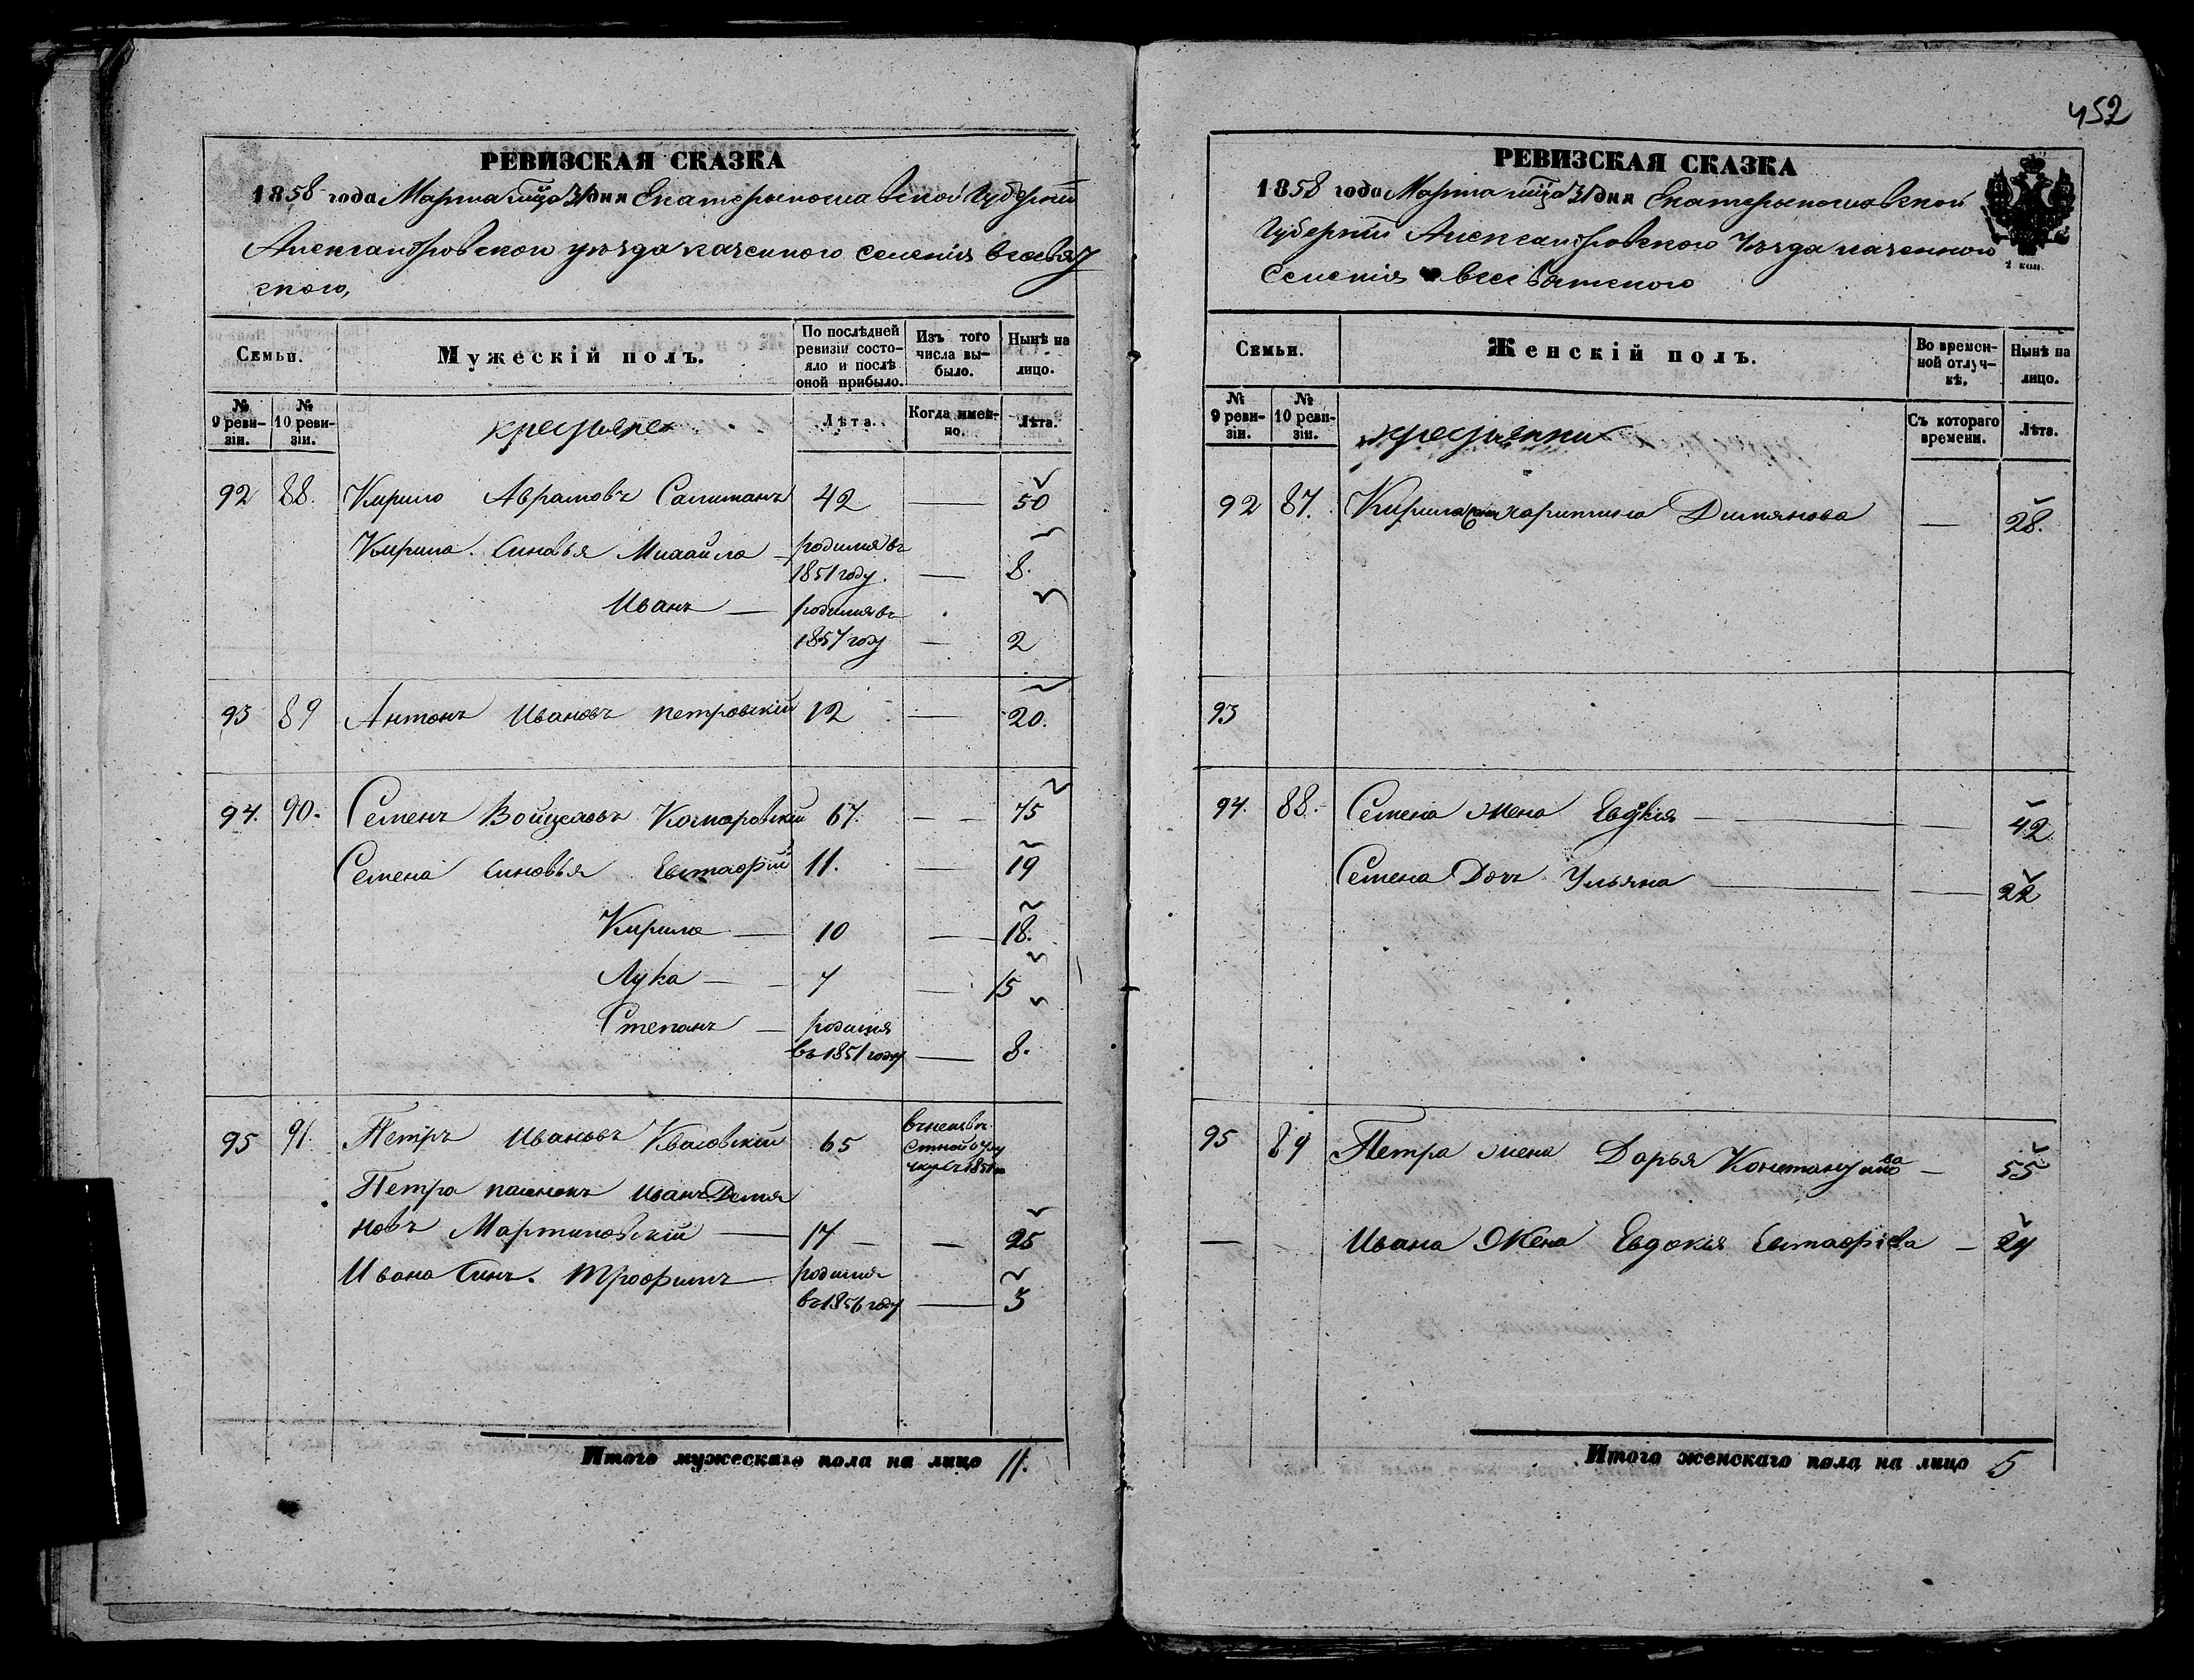 452
РЕВИЗСКАЯ СКАЗКА
1858 года Марта мца 31 дня Екатеринославской Губерніи
Александровского уезда казенного селенія всесвят
ского,
Семьи.
Мужескій полъ.
По послѣдней ревизіи состояло и послѣ оной прибыло.
Изъ того числа выбыло.
Нынѣ на лицо.
№ 9 ревизіи.
№ 10 ревизіи.
крестьяне
Лѣта.
Когда именно.
Лѣта.
92 88. Кирило Аврамовъ 42 — 50
Кирила синовья Михайла — родился въ
1851 году. — 8.
Иванъ — родился въ
1857 году — 2
93 89 Антонъ Ивановъ петровскій 12 — 20.
94. 90. Семенъ Войцеховъ Комаровскій 67. — — 75
Семена синовья Евтафій 11. — 19
Кирило — 10 — 18.
Лука — — 7 — 15
Степанъ — родился
въ 1851 году — 8.
95 91. Петръ Ивановъ Квасовскій 65
Петра пасинокъ Иванъ Демя
новъ Мартиновскій — 17 — — 25
Ивана Синъ. Трофимъ родился
въ 1856 году — 3
Итого мужескаго пола на лицо 11.
РЕВИЗСКАЯ СКАЗКА
1858 года Марта мца 31 дня Екатеринославской
Губерніи Александровского Уезда казенного
Селенія всесвятского
2 коп.
Семьи.
Женскій полъ.
Во временной отлучкѣ.
Нынѣ на лицо.
№ 9 ревизіи.
№ 10 ревизіи.
крестьянки
Съ котораго времени.
Лѣта.
92 87. Кирила жена харитина Димянова — 28.
93
94. 88. Семена жена Евдокія — — 42
Семена Дочъ Ульяна — — 22
95 89 Петра жена Дарья Константинова — 55
— Ивана Жена Евдокія Евтафіева — 24
Итого женскаго пола на лицо 5